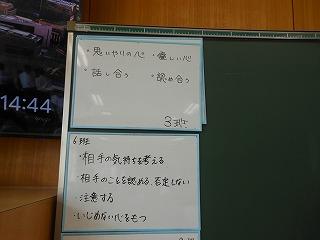 14:44
・思いやりの心 ・優しい心
・話し合う ・認め合う
3班
6班
・相手の気持ちを考える
・相手のことを認める、否定しない
・注意する
・いじめない心をもつ